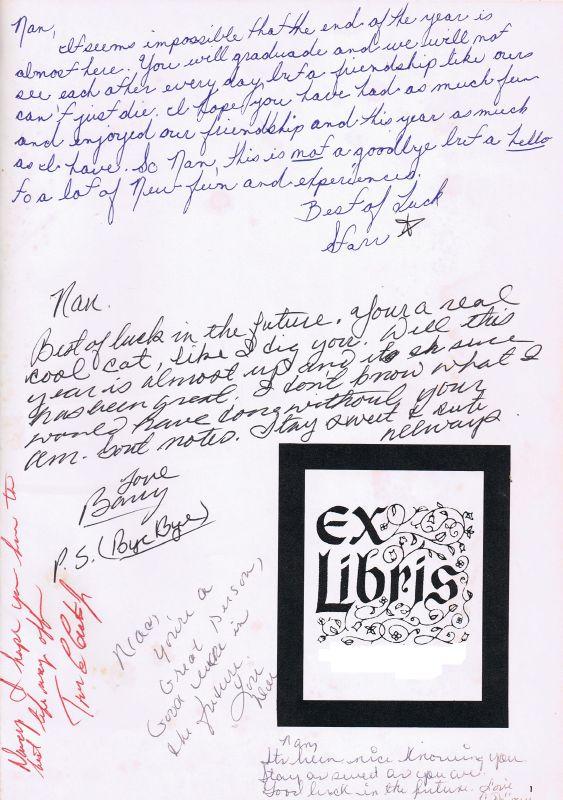 Nan,
It seems impossible that the end of the year is
almost here. You will graduade and we will not
see each other every day but a friendship like ours
can't just die. I hope you have had as much fun
and enjoyed our friendship and this year as much
as I have. So Nan, this is not a goodbye but a hello
to a lot of New fun and experiences.
Best of Luck
Starr
Nan.
Best of luck in the future. Your a real
cool cat, like I dig you. Well this
year is almost up and it sh sure
has been great. I don't know what I
would have done without your
am. Gout notes. Stay sweet & cute
allways
Love
Barry
P.S. (Bye Bye)
Nancy I hope you have the
best
off
EX
Libris
You're a
Great Person,
Good luck in
the future.
Love
Nan,
It's been nice knowing you.
Stay as sweet as you are.
Good luck in the future. Love